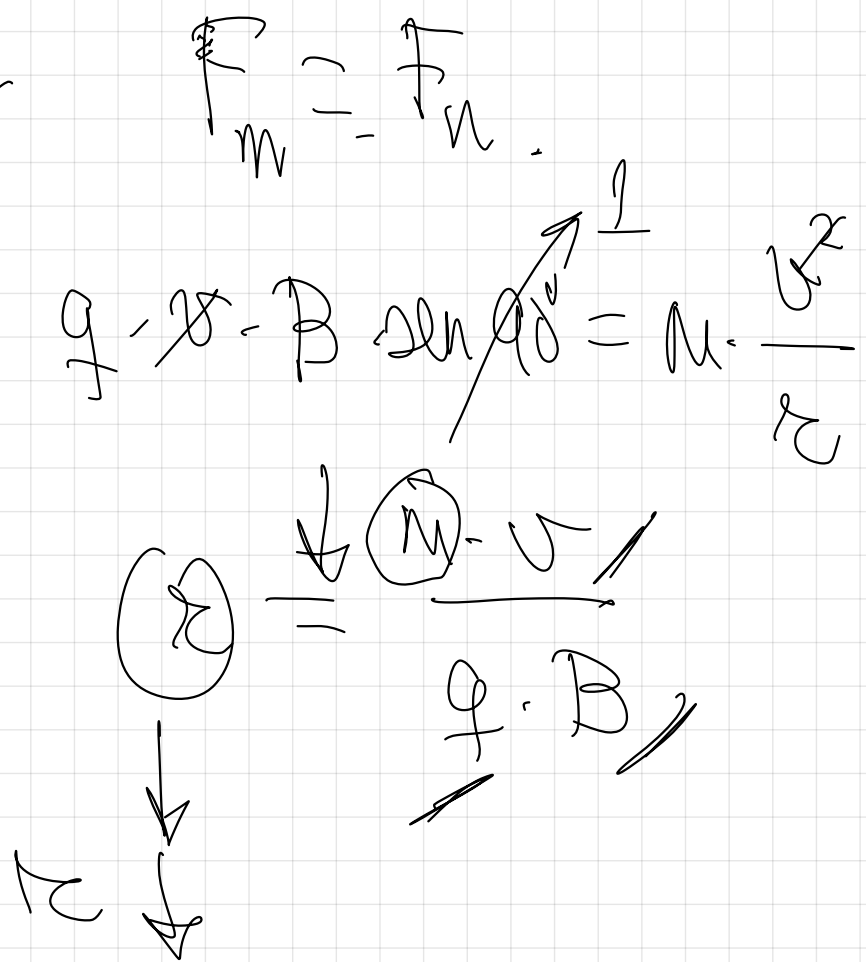 Fm = Fn.
q · v · B · sen 90° = m · v² / r
1
r = m · v / q · B
r ↓